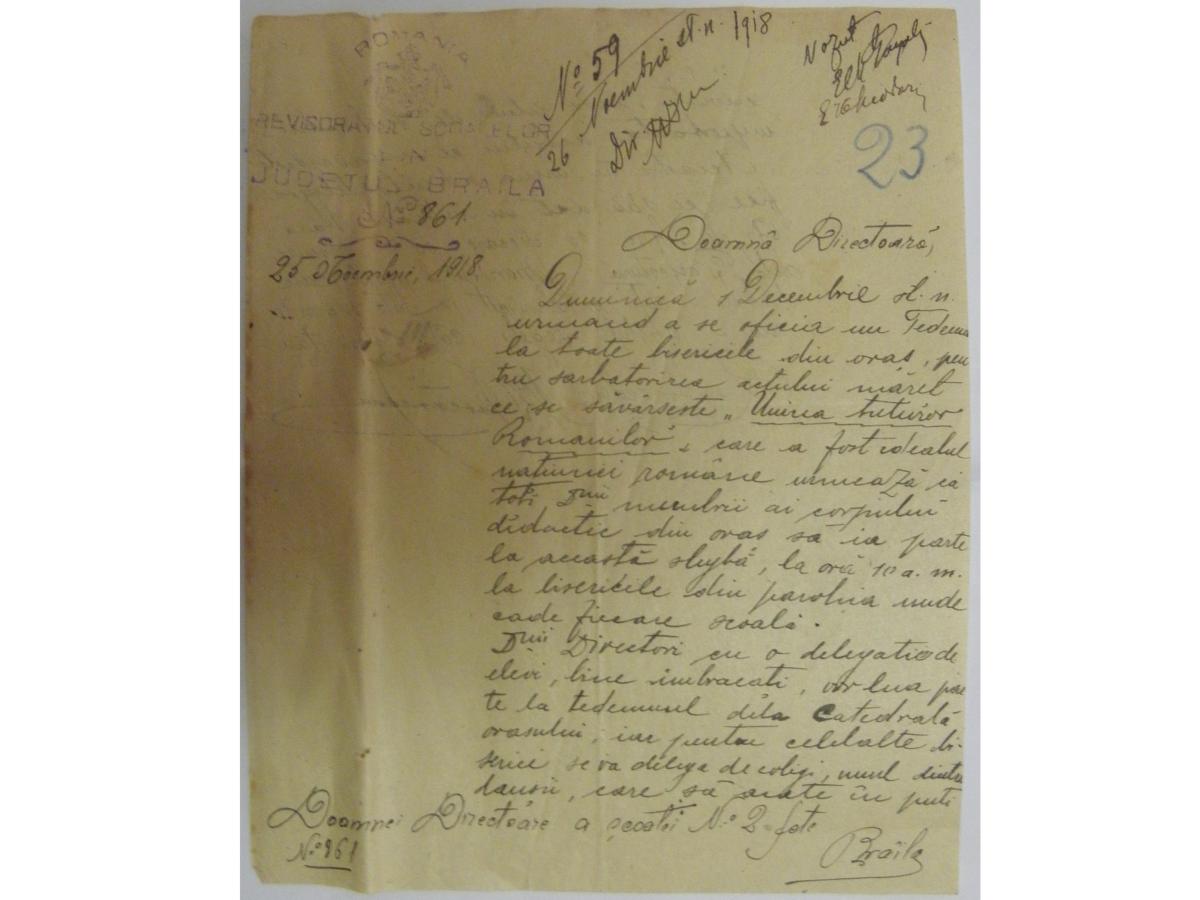 ROMANIA
REVIZORATUL SCOALELOR
JUDEȚUL BRAILA
No 861
25 Noembrie, 1918
No 59
26 Noembrie st. n. 1918
Dir.
Vazut
23
Doamnă Directoară,
Duminică 1 Decembrie st. n.
urmand a se oficia un Tedeum
la toate bisericile din oraș, pen
tru sarbatorirea actului măreț
ce se săvârseste „Unirea tuturor
Romanilor", care a fost idealul
natiunei române urmează ca
toti Dnii membrii ai corpului
didactic din oras să ia parte
la această slujbă, la oră 10 a. m.
la bisericile din parohia unde
cade fiecare scoală.
Dnii Directori cu o delegatie de
elevi, bine imbracati, vor lua par
te la tedeumul dela Catedrala
orasului, iar pentru celelalte bi-
serici se va delega de colegi, unul dintre
dansii, care să arate în puti
Doamnei Directoare a școalei No. 2 fete
No 861
Brăila